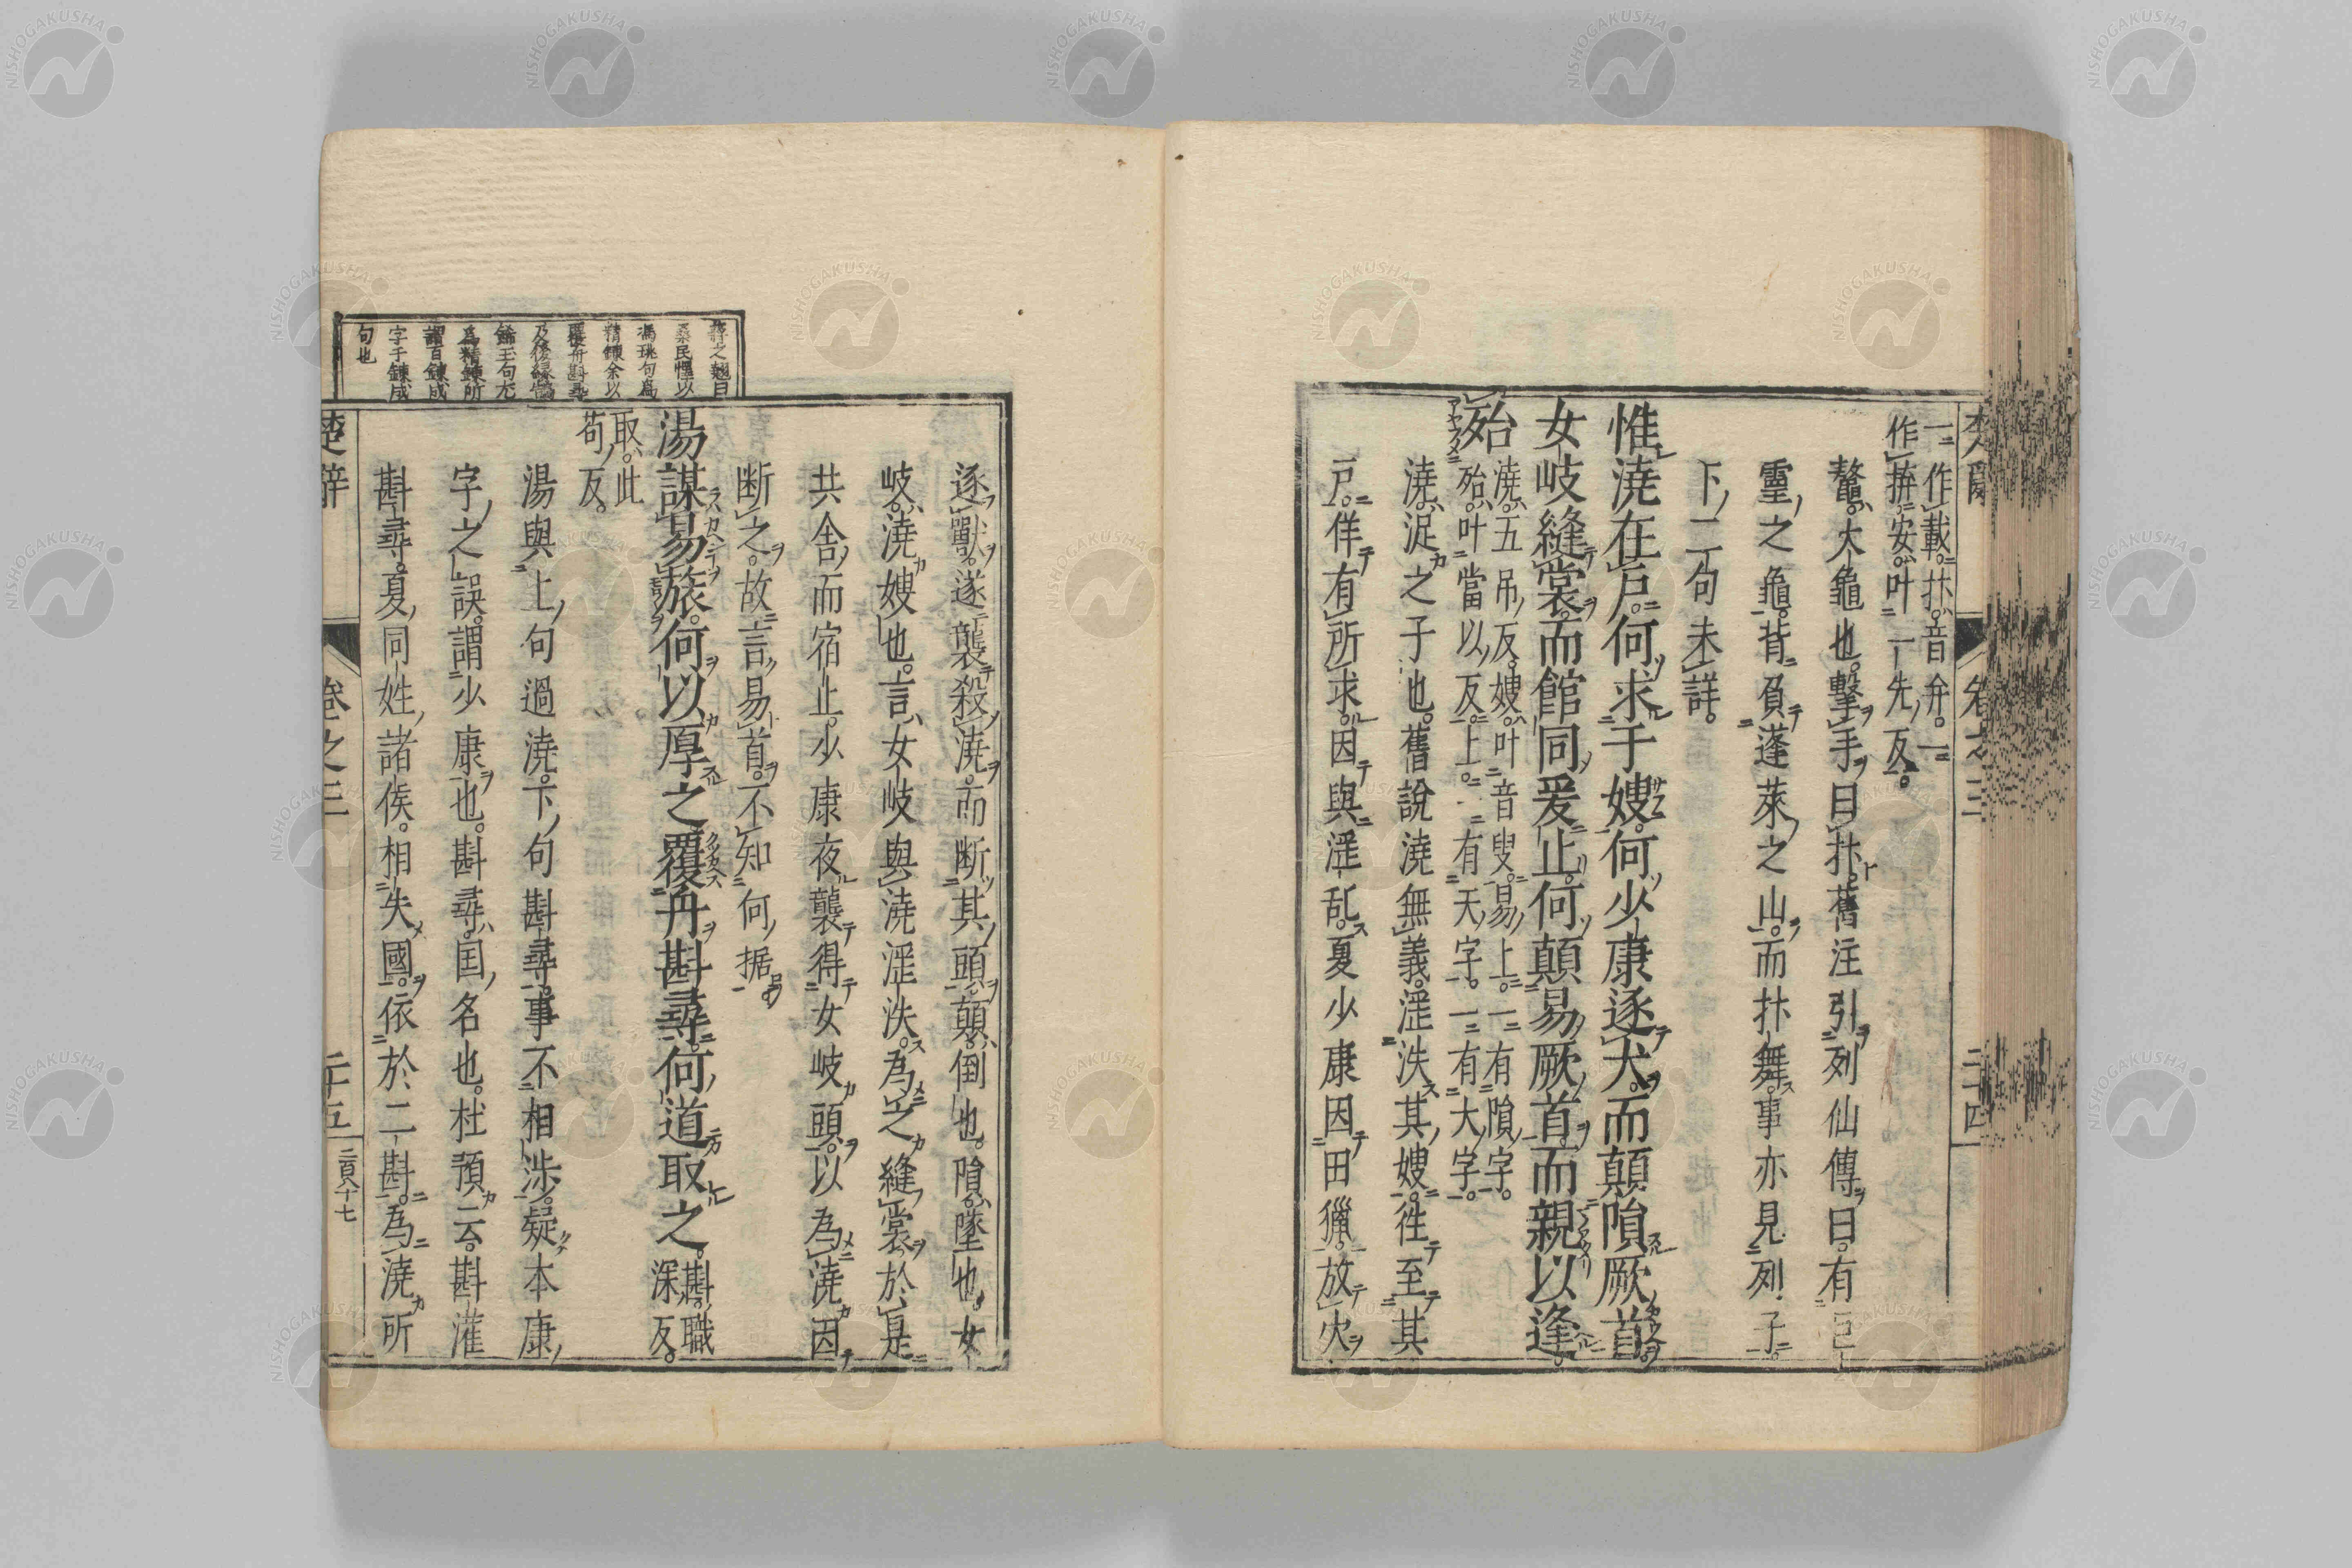 一作載。抃。音弁。一
作拚。安。叶一先反。
鼇。大龜也。擊手曰抃。舊注引列仙傳曰。有巨
靈之龜。背負蓬萊之山。而抃舞。事亦見列子。
下二句未詳。
惟澆在戶。何求于嫂。何少康逐犬。而顛隕厥首。
女岐縫裳。而館同爰止。何顛易厥首。而親以逢
殆
澆。五吊反。嫂。叶音叟。易上。一有隕字。
殆。叶當以反。上。一有天字。一有大字。
澆。浞之子也。舊說澆無義。淫泆其嫂。往至其
戶。佯有所求。因與淫乱。夏少康因田獵。放犬
逐獸。遂襲殺澆。而断其頭。顛。倒也。隕。墜也。女
岐。澆嫂也。言女岐與澆淫泆。為之縫裳。於是
共舍而宿止。少康夜襲得女岐頭。以為澆。因
断之。故言易首。不知何據
湯謀易旅。何以厚之。覆舟斟尋。何道取之。
斟。職
深反。
取。此
苟反。
湯與上句過澆。下句斟尋。事不相涉。疑本康
字之誤。謂少康也。斟尋。国名也。杜預云。斟灌
斟尋。夏同姓諸侯。相失國。依於二斟。為澆所
楚辞 卷之三 二十五 二百八十七
蔣之翹曰
桑民懌以
馮珧句為
精鍊余以
覆舟斟尋
及後緣鵠
飾玉句尤
為精鍊所
謂百鍊成
字千鍊成
句也
NISHOGAKUSHA